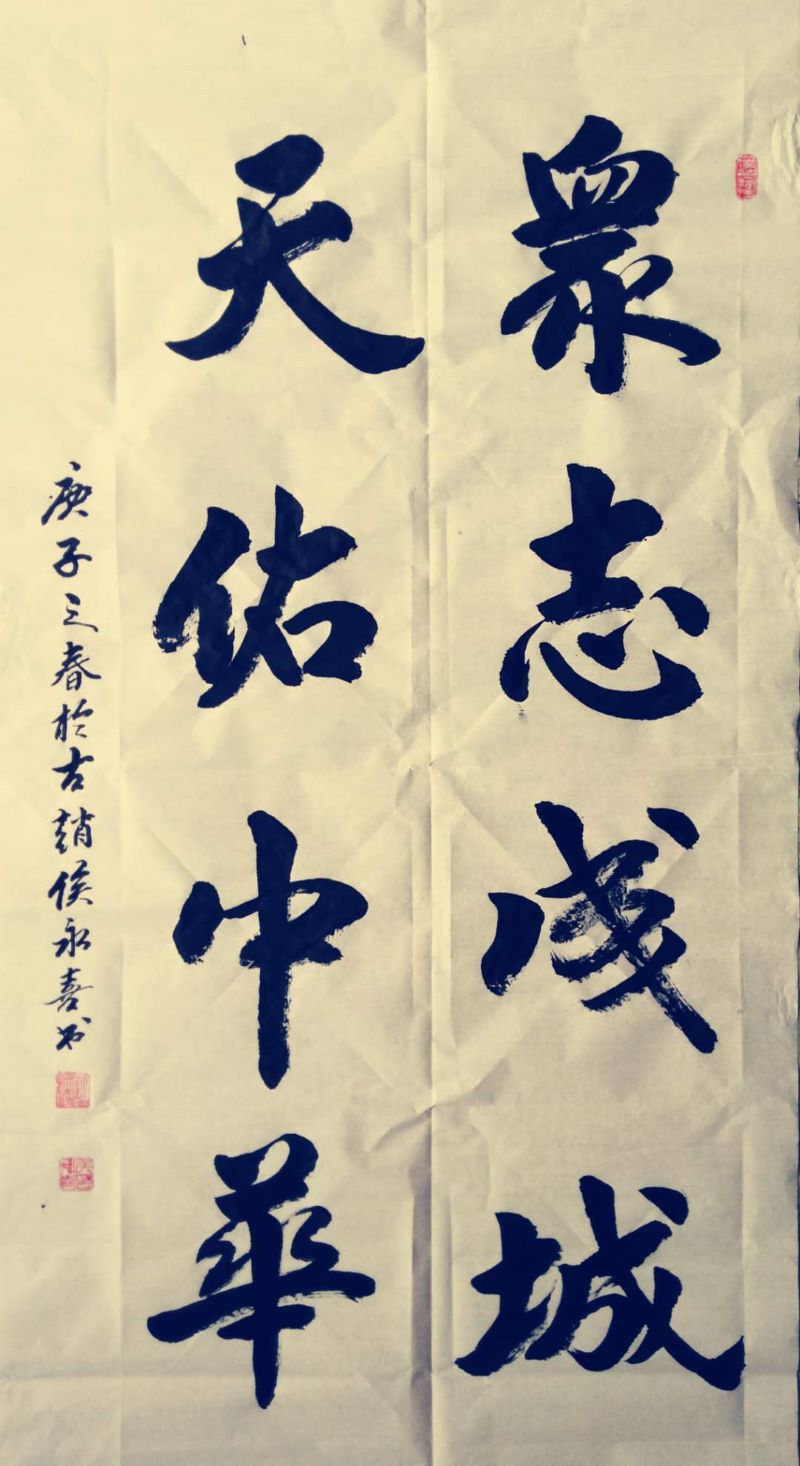 眾志成城
天佑中華
庚子之春於古趙侯永喜书